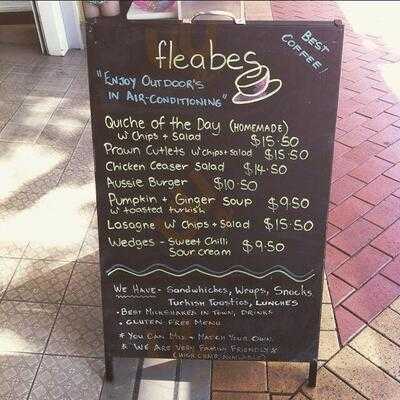 fleabes
BEST
COFFEE!
"ENJOY OUTDOOR'S
IN AIR-CONDITIONING"
QUICHE OF THE DAY (HOMEMADE)
W CHIPS + SALAD $15.50
PRAWN CUTLETS W CHIPS + SALAD $15.50
CHICKEN CEASER SALAD $14.50
AUSSIE BURGER $10.50
PUMPKIN + GINGER SOUP $9.50
W TOASTED TURKISH
LASAGNE W CHIPS + SALAD $15.50
WEDGES - SWEET CHILLI $9.50
SOUR CREAM
WE HAVE - SANDWHICHES, WRAPS, SNACKS
TURKISH TOASTIES, LUNCHES
• BEST MILKSHAKES IN TOWN, DRINKS
• GLUTEN FREE MENU
* YOU CAN MIX + MATCH YOUR OWN
* WE ARE VERY FAMILY FRIENDLY
(HIGH CHAIR AVAILABLE)